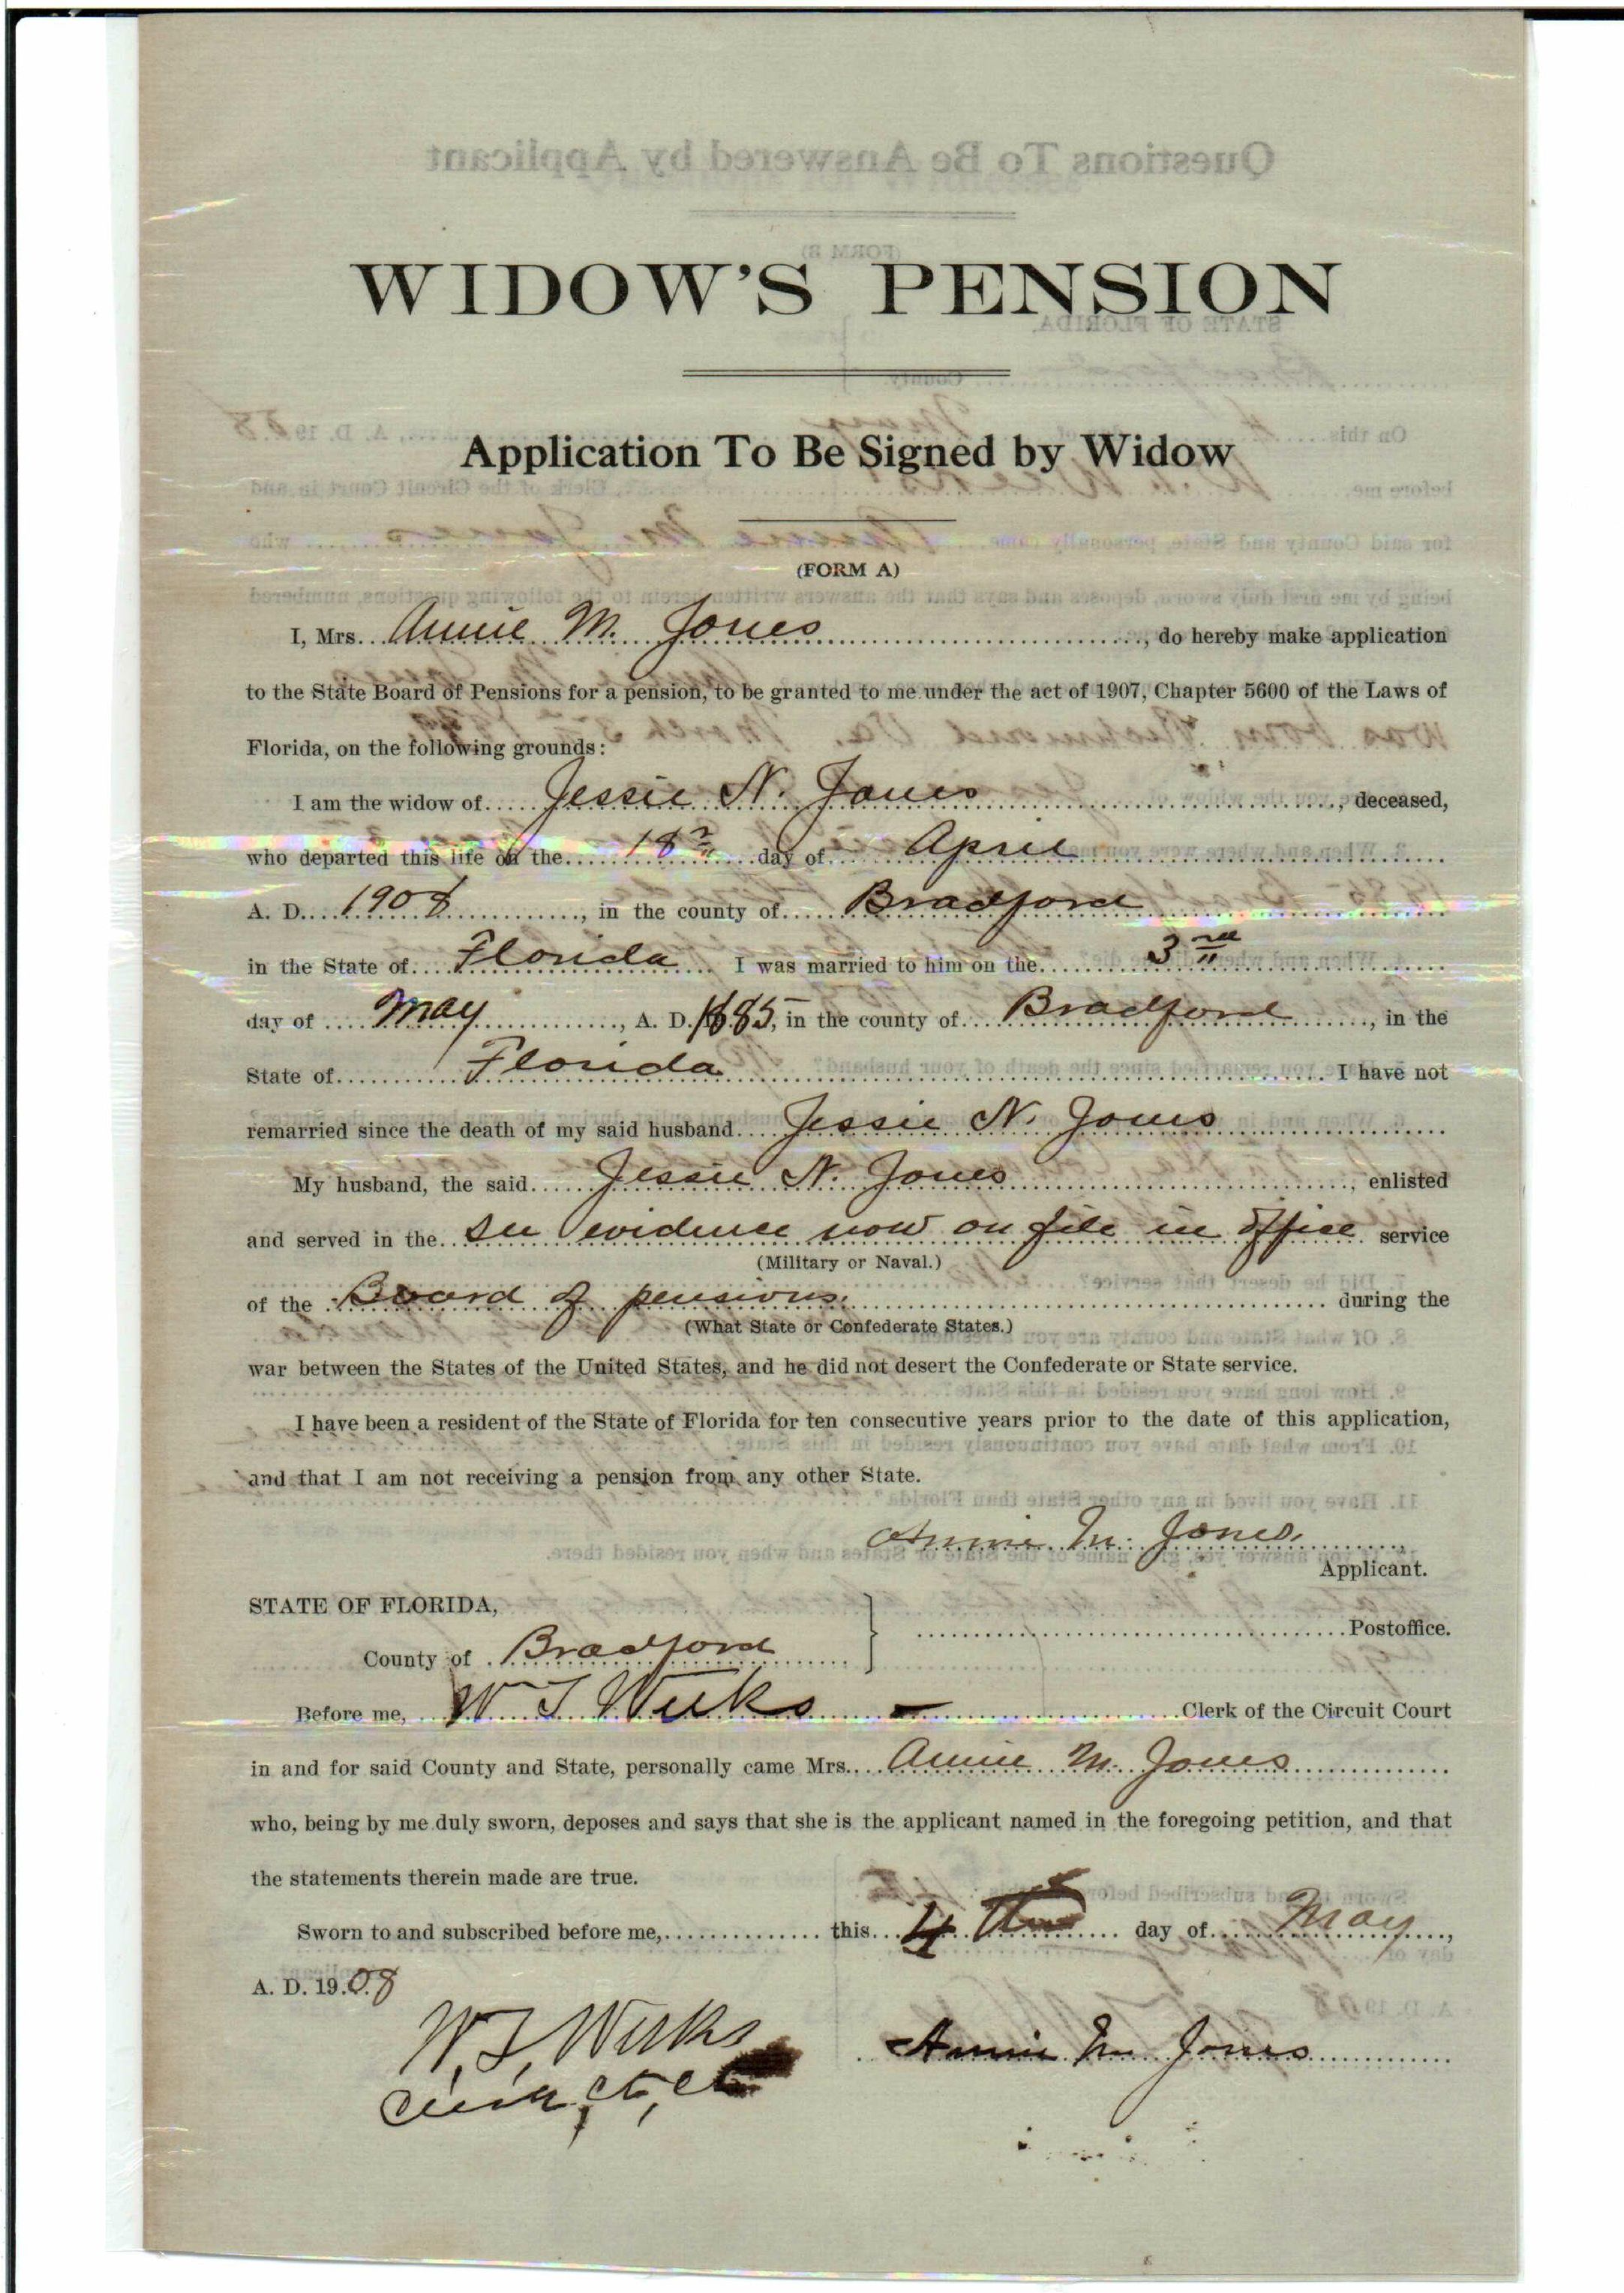 WIDOW'S PENSION
Application To Be Signed by Widow
(FORM A)
I, Mrs. Annie M. Jones, do hereby make application
to the State Board of Pensions for a pension, to be granted to me under the act of 1907, Chapter 5600 of the Laws of
Florida, on the following grounds:
I am the widow of Jessie N. Jones, deceased,
who departed this life on the 18" day of April
A. D. 1908, in the county of Bradford
in the State of Florida I was married to him on the 3rd
day of May, A. D. 1885, in the county of Bradford, in the
State of Florida I have not
remarried since the death of my said husband Jessie N. Jones
My husband, the said Jessie N. Jones, enlisted
and served in the See evidence now on file in office service
(Military or Naval.)
of the Board of pensions. during the
(What State or Confederate States.)
war between the States of the United States, and he did not desert the Confederate or State service.
I have been a resident of the State of Florida for ten consecutive years prior to the date of this application,
and that I am not receiving a pension from any other State.
Annie M. Jones.
Applicant.
STATE OF FLORIDA,
Postoffice.
County of Bradford
Before me, W T Weeks Clerk of the Circuit Court
in and for said County and State, personally came Mrs. Annie M. Jones
who, being by me duly sworn, deposes and says that she is the applicant named in the foregoing petition, and that
the statements therein made are true.
Sworn to and subscribed before me, this 4th day of May,
A. D. 1908
W. T. Weeks Annie M. Jones
Clerk, Ct, Ct